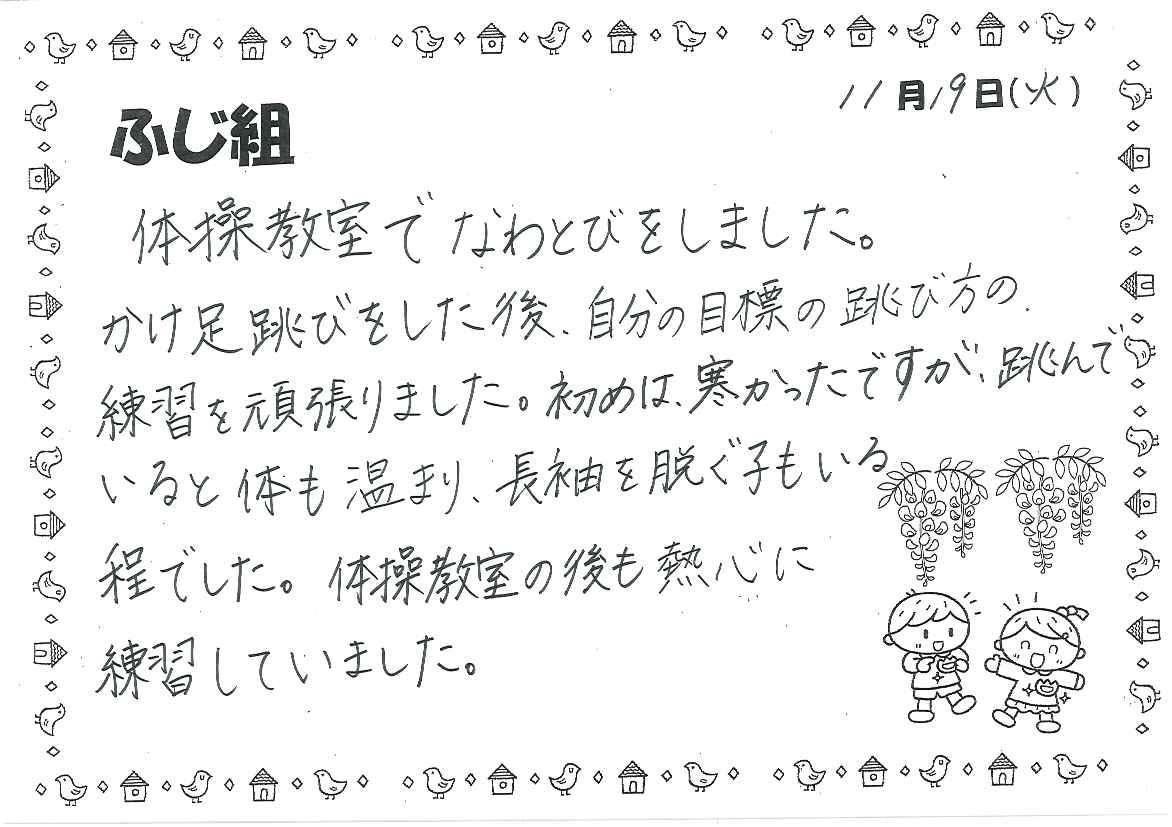 11月19日(火)
ふじ組
体操教室でなわとびをしました。
かけ足跳びをした後、自分の目標の跳び方の
練習を頑張りました。初めは、寒かったですが、跳んで
いると体も温まり、長袖を脱ぐ子もいる
程でした。体操教室の後も熱心に
練習していました。